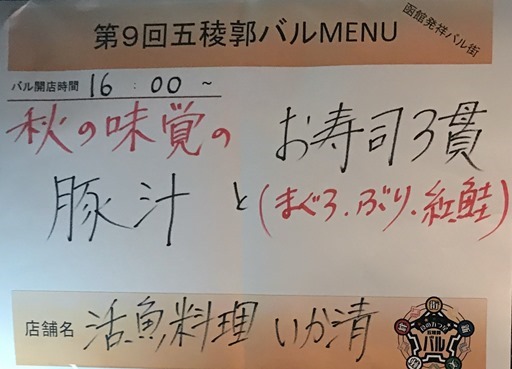 第9回五稜郭バルMENU
函館発祥バル街
バル開店時間 16:00~
秋の味覚の お寿司3貫
豚汁 と (まぐろ、ぶり、紅鮭)
店舗名 活魚料理 いか清
バル